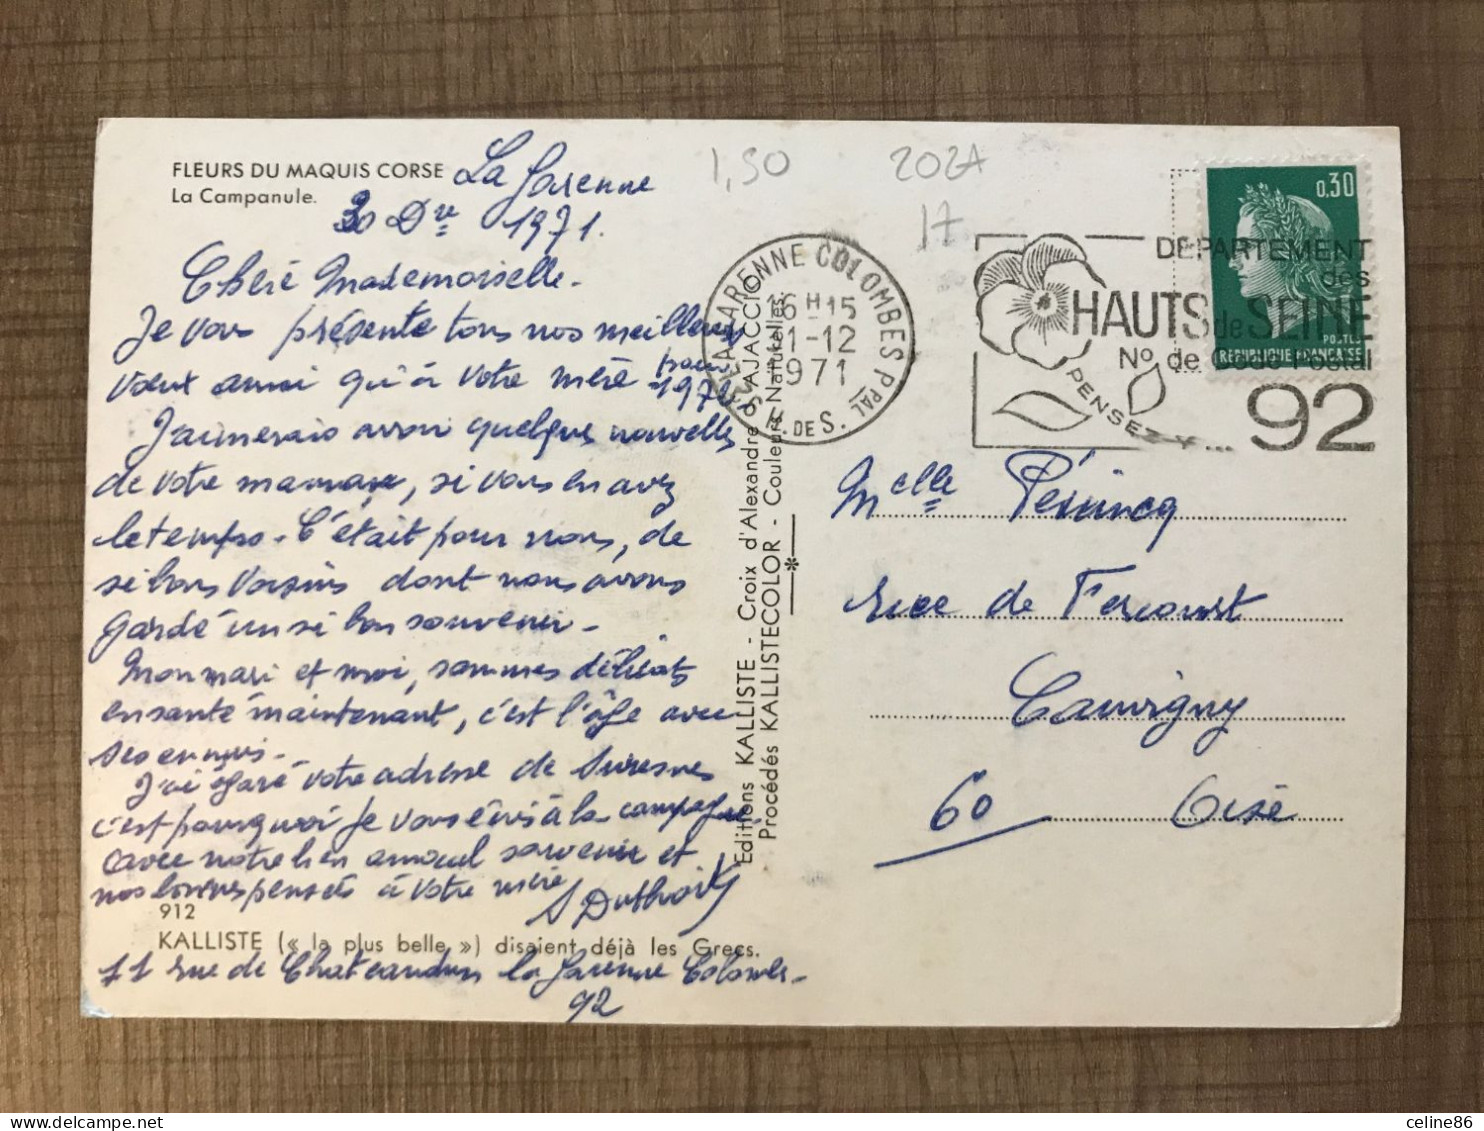 FLEURS DU MAQUIS CORSE
La Campanule.
La Garenne
30 Dre 1971.
Chère Mademoiselle.
Je vous présente tous nos meilleurs
voeux ainsi qu'à votre mère pour
1972
J'aimerais avoir quelques nouvelles
de votre maman, si vous en avez
le temps. C'était pour nous, de
si bons voisins dont nous avons
gardé un si bon souvenir.
Mon mari et moi, sommes délicats
en santé maintenant, c'est l'âge avec
ses ennuis.
J'ai égaré votre adresse de Suresnes
c'est pourquoi je vous écris à la campagne.
avec notre bien amical souvenir et
nos bonnes pensées à votre mère
912
KALLISTE (« la plus belle ») disaient déjà les Grecs.
11 rue de Chateaudun la Garenne Colombes
92
Editions KALLISTE - Croix d'Alexandre - AJACCIO
Procédés KALLISTECOLOR - Couleurs Naturelles
1,50
202A
17
LA GARENNE COLOMBES PPAL
16 H 15
1-12
1971
H. DE S.
DEPARTEMENT
des
HAUTS de SEINE
No de Code Postal
PENSEZ-Y....
92
0,30
POSTES
REPUBLIQUE FRANCAISE
Melle
rue de Fercourt
Cauvigny
60 Oise
celine86